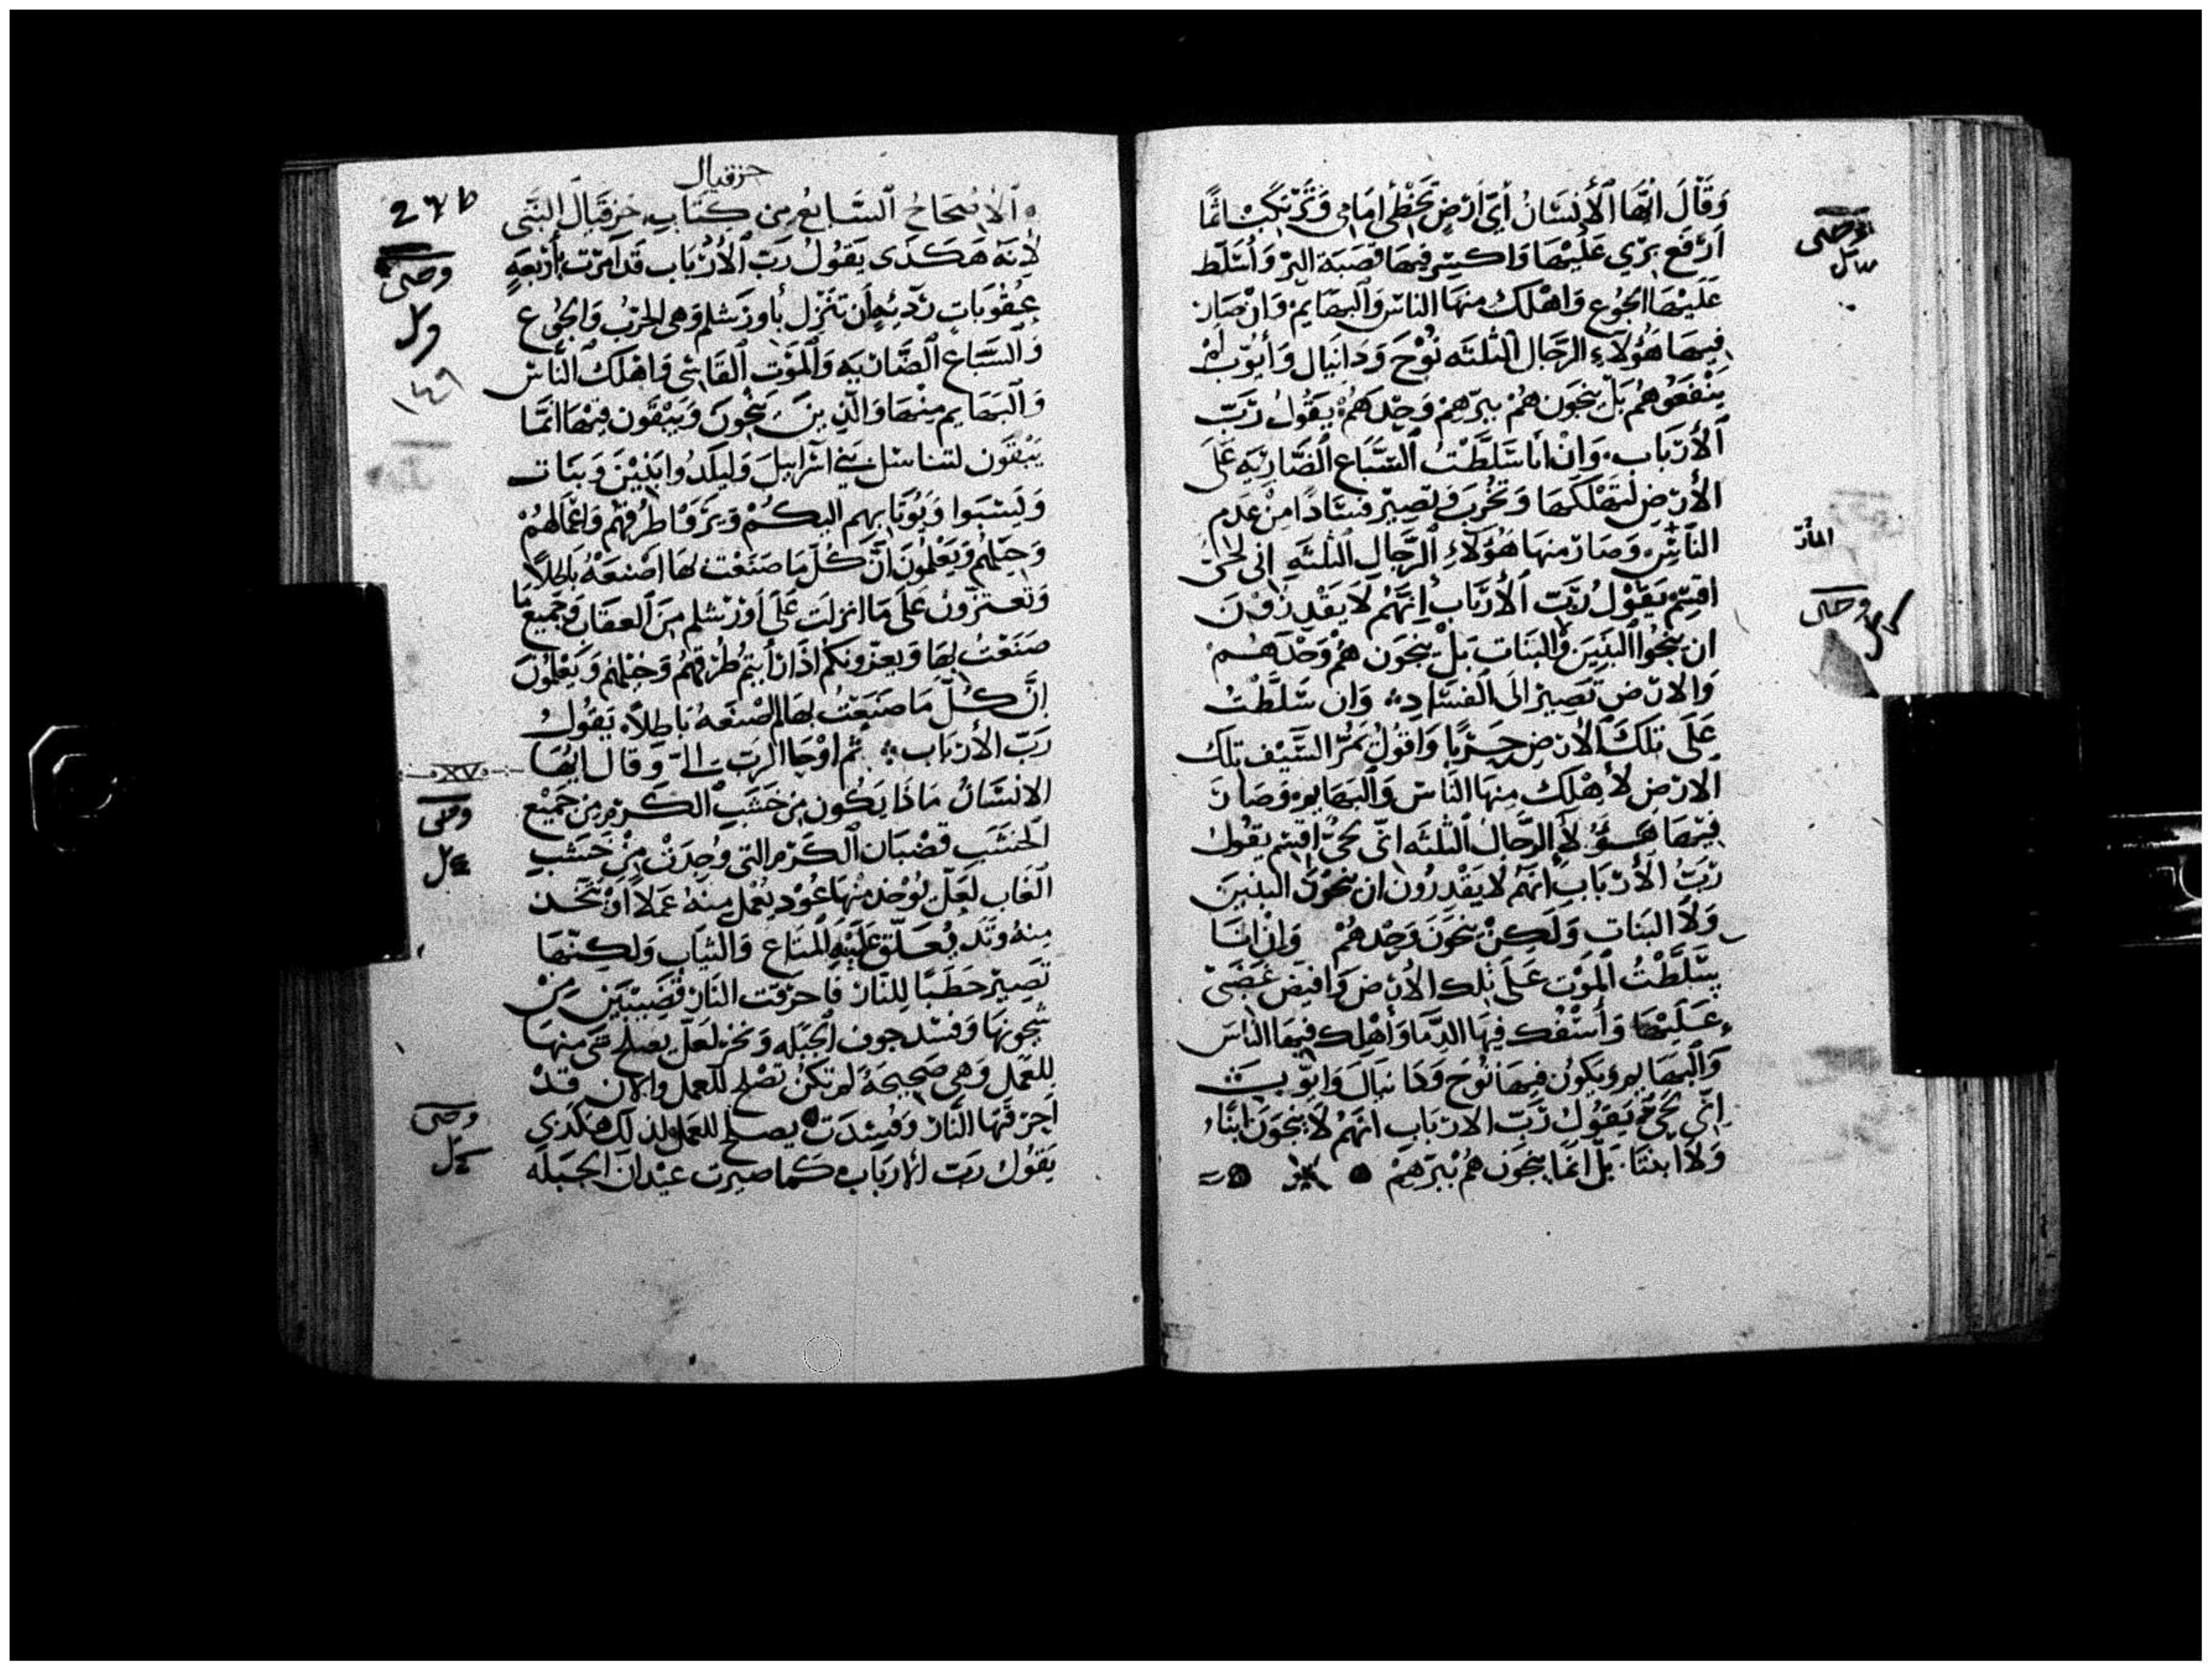 وَقَالَ ايُّهَا الأنسَانُ أيّ ارْضٍ تَخْطِى امَامِى وَتَرْتكبُ اثمًا
اَرْفع يَدي عَلَيْهَا وَاكسِر فيهَا قصَبَة البرّ وَأسَلط
عَلَيْهَا الجُوع وَاهْلك منهَا الناس وَالبهَايم وَان صَار
فِيهَا هَؤلاءِ الرّجَال الثلثَه نُوْحَ وَدَانيَال وَأيوب لم
يَنْفَعُوهُم بَل ينجَون هُمْ ببرّهمْ وَحْدَهُمْ يقُولُ رَبّ
الأرْبَاب وَانْ انا سَلَّطْتُ السّبَاع الضّاريَه عَلَى
الأرْضِ لتهْلكهَا وَتخرُبَ وَتصِيرْ فسَادًا مِنْ عَدَم
النَاسِ وَصَارَ منهَا هَؤلآءِ الرّجَالِ الثلثَهِ انى لحىّ
اقسِم يَقوْلُ رَبّ الأرْبَابُ انهّمْ لا يَقْدرُونَ
ان ينجُوا البَنيَن وَالبَنَات بَلْ ينجَون هُمْ وَحْدَهُم
وَالارْض تَصِيرْ الىَ الفسَاد وَان سَلَّطْتُ
عَلَى تلكَ الأرْضِ حَرْبًا وَاقولُ يَمُرّ السَّيْف تلك
الارْضِ لأهْلك مِنهَا النَّاس وَالبهَايم وَصَارَ
فِيْهَا هَؤلأ الرّجَالُ الثلثَه انّى حىٌّ اقسِم يقول
رَبُّ الأرْبَابِ انّهمْ لا يَقْدرُون ان ينجّوُا البنيَن
وَلا البَنات وَلكِنْ ينجَونَ وَحْدهُمْ وَاِنْ انَا
سَلَّطْتُ المَوْت عَلَى تلك الارْض وَافيضَ غضَبى
عَلَيْهَا وَأسْفك فيهَا الدّمَا وَاهْلِك فيهَا الناسَ
وَالبَهَايم وَيَكونُ فيهَا نُوْحَ وَدَانيَالَ وَايّوب
انّي حَيّ يَقولُ رَبّ الارْبَابِ انهُمْ لا ينجَونَ ابنَاء
وَلا ابنتَا بَلْ انمَا ينجَون هُمْ ببرّهِمْ
وحى
وحى
حزقيال
الاصحَاحُ السَّابعُ مِن كِتَابِ حَزقيَالَ النَّبى
لأنه هَكَذَى يَقوُلُ رَبّ الأرْبَاب قَد امَرْت أرْبَعَهٍ
عقوُبَاتٍ رَدئهٍ أن تنزل بأورَشلم وَهى الحَرْبُ وَالجُوع
وَالسّبَاع الضّاريَه وَالمَوْت القَاسى وَاهْلك النَّاس
وَالبهَايم مِنْهَا وَالّذِينَ ينجُونَ وَيَبْقَون فيْهَا انمَّا
يَبْقَون لتناسل بَني اسْرَاييلَ وَليلَدُوا بَنِيْنَ وَبنَات
وَليسْبَوا وَيُوتَا بهِم اليكُمْ وَيرَوْا طرُقهُمْ وَاعْمَالهُمْ
وَحيَلهُم وَيَعْلمُونَ انَّ كُل مَا صَنَعْت لهَا اصْنعَهُ باطلاً
وَتعتزون عَلى مَا انزلت عَلَى اوْرَشلم مِنَ العقَاب وَجميع مَا
صَنَعْت بهَا وَيعزّونكم اذ ارَأيتمُ طرُقهُمْ وَحيَلهُم وَيَعْلمُونَ
انَّ كُلّ مَا صَنَعْتُ بهَا لم اصْنعَهُ بَاطلاً يَقولُ
رَبّ الأرْبَاب ثم اوْحَا الرب الىّ وَقال ايُّهَا
الانسَانُ مَاذَا يَكُون مِن خَشَبِ الكَرْم مِن جَميْع
الخشَبِ قضبَان الكَرْم التى وُجدَتْ مِنْ خَشَبِ
الغَاب لعَلّ يُوْخذ منهَا عُوْد يُعْمل مِنهُ عَمَلاً اوْ يتّخذ
مِنهُ وَتد يُعَلّق عَلَيْهِ المتاع وَالثيَاب وَلكِنّهَا
تَصِير حَطَبًا لِلنَار فَاحرَقت النَار قضيبَيَن مِنْ
للعَمَل وَهى صَحِيحَةً لم تكنْ تصْلح للعمل وَالان قدْ
احرَقَتهَا النَّار وَفسَدَت يصلح للعَمل ولذلك هَكذى
يَقوُل رَبّ الأرْبَاب كَما صيرت عيدان الحبَله
وحى
١٤٩
XV
وحى
وحى